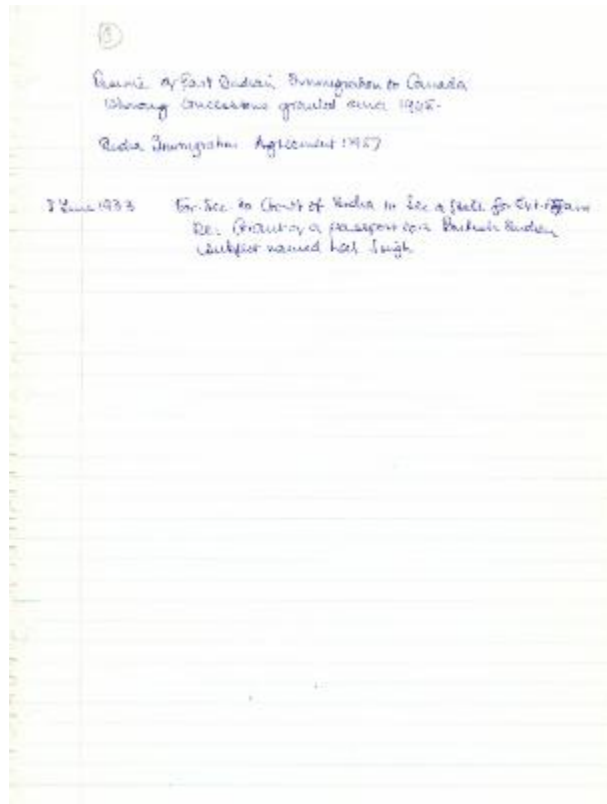 3
Resumé of East Indian Immigration to Canada
Showing Concessions granted since 1905-
India Immigration Agreement 1957
June 1933 For. Sec. to Govt of India to Sec of State for Ext. Affairs
Re. Grant of a passport to a British Indian
subject named Singh